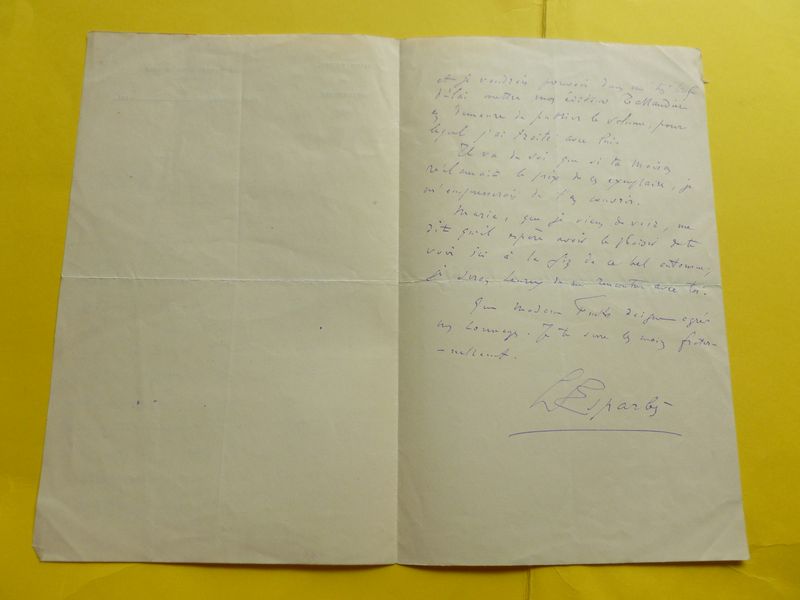 et je voudrais pouvoir dans un très bref
délai mettre mon éditeur Tallandier
en demeure de publier le volume, pour
lequel j'ai traité avec lui.
Il va de soi que si ta maison
réclamait le prix de ces exemplaires, je
m'empresserais de t'en couvrir.
que je viens de voir, me
dit qu'il espère avoir le plaisir de te
voir ici à la fin de ce bel automne,
je serai heureux de me rencontrer avec toi.
Que Madame daigne agréer
mes hommages. Je te serre les mains frater-
-nellement.
L Esparbès